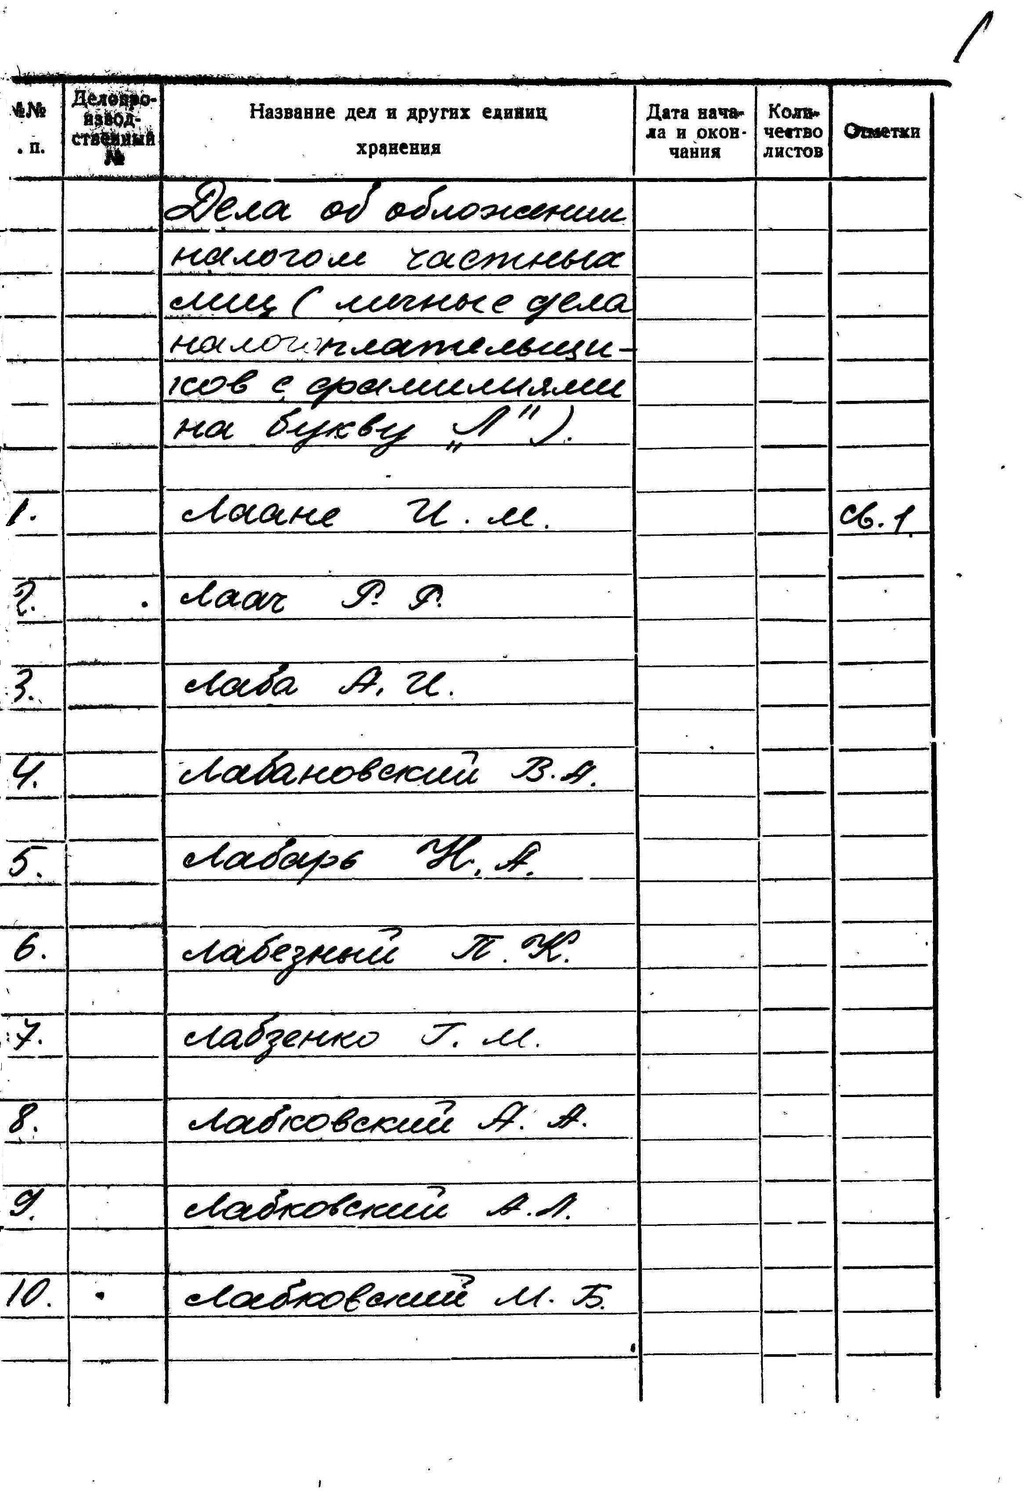 1
№№ п. Делопроизводственный № Название дел и других единиц хранения Дата начала и окончания Количество листов Отметки
Дела об обложении
налогом частных
лиц (личные дела
налогоплательщи-
ков с фамилиями
на букву „Л").
1. Лаане И. М. св. 1
2. Лаач Р. Р.
3. Лаба А. И.
4. Лабановский В. А.
5. Лабарь Н. А.
6. Лабезный П. К.
7. Лабзенко Г. М.
8. Лабковский А. А.
9. Лабковский А. Л.
10. Лабковский М. Б.